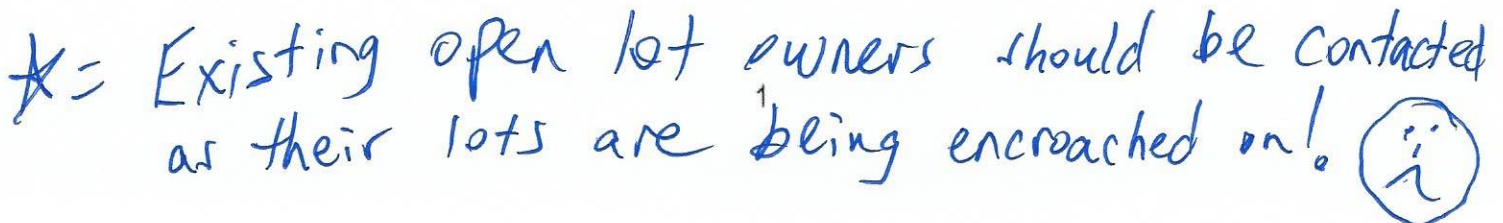 ☆= Existing open lot owners should be contacted
1
as their lots are being encroached on!